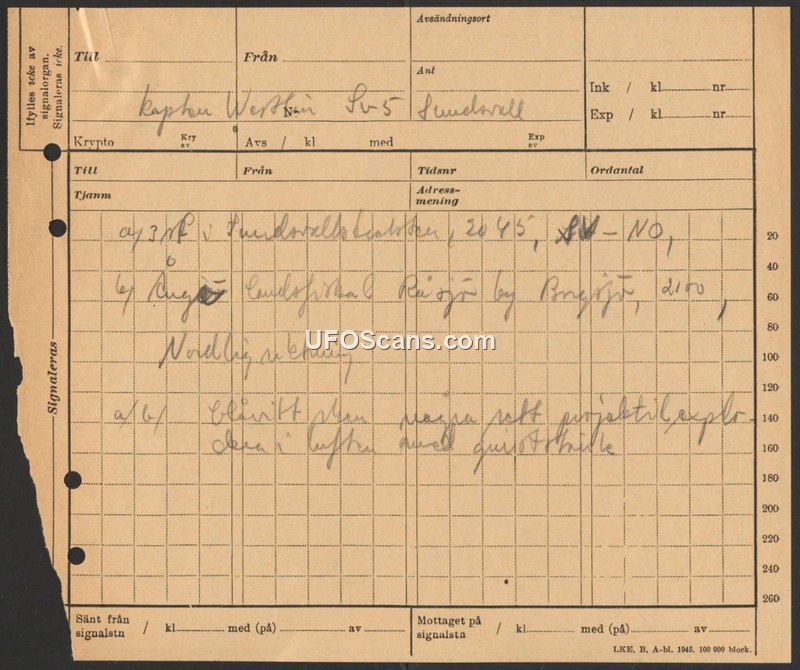 Ifylles icke av
signalorgan.
Signaleras icke.
Till
Från
Avsändningsort
Ant
kapten Westlin Sv5 Sundsvall
Nr
Ink / kl nr
Exp / kl nr
Krypto Kry av Avs / kl med Exp av
Till Från Tidsnr Ordantal
Tjanm Adress-
mening
a/ 3 i 2045, – NO,
20
40
b/ landsfiskal by Borgsjö, 2100,
60
80
UFOScans.com
Nordlig riktning
100
120
a/ b/ blåvitt sken några sett projektil explo-
140
dera i luften med
160
Signaleras
180
200
220
240
260
Sänt från
signalstn / kl med (på) av
Mottaget på
signalstn / kl med (på) av
LKE, B, A-bl. 1945, 100 000 block.